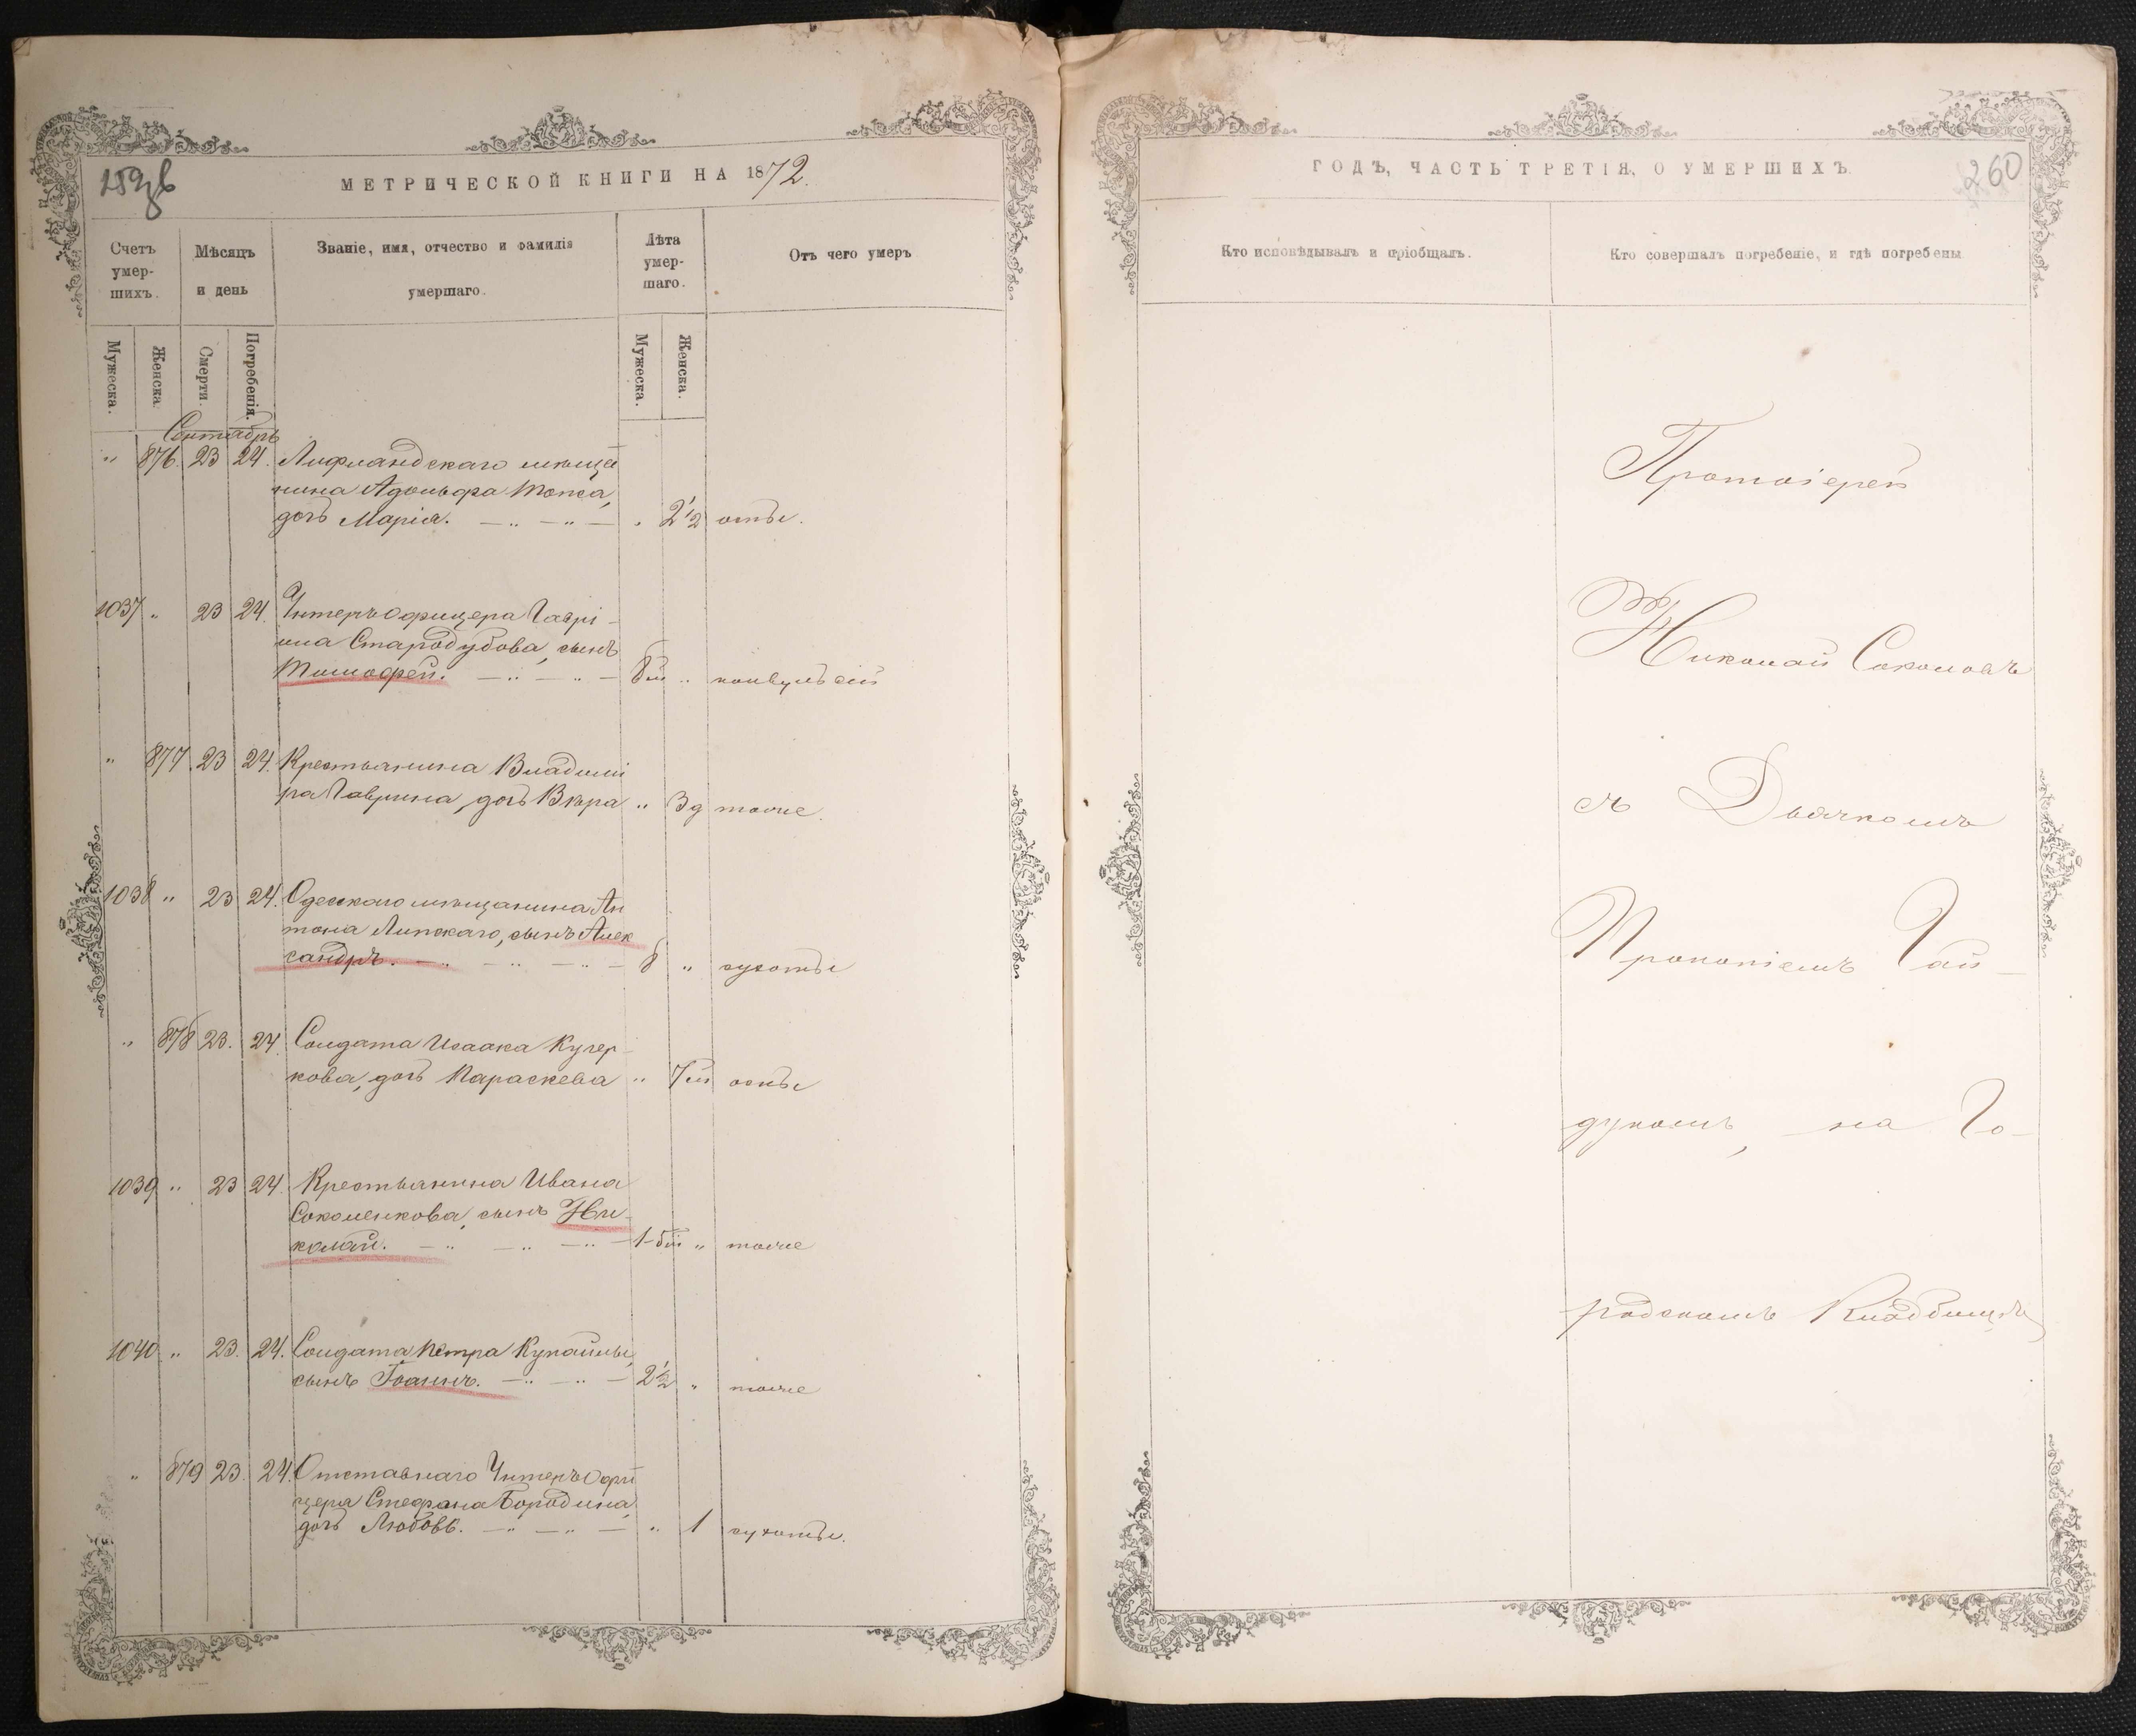 МЕТРИЧЕСКОЙ КНИГИ НА 1872.
Счетъ умер-шихъ.
Мѣсяцъ и день
Званіе, имя, отчество и фамилія умершаго.
Лѣта умер-шаго.
Отъ чего умеръ
Мужеска.
Женска.
Смерти.
Погребенія.
Мужеска.
Женска.
Сентябрь
" 876. 23 24. Лифляндскаго мѣща
нина Адольфа
дочь Марія. " 2 1/2 оспы.
1037 " 23 24. Унтеръ Офицера Гаврі-
ила Стародубова, сынъ
Тимофей. 8м " конвульсій
" 877 23 24. Крестьянина Владимі
ра Гаврина, дочь Вѣра " 3д тоже.
1038 " 23 24. Одесскаго мѣщанина Ан
тона Липскаго, сынъ Алек
сандръ. 8 " сухоты
" 878 23. 24. Солдата Исаака Кучер-
кова, дочь Параскева " 7м оспы
1039 " 23 24. Крестьянина Ивана
Соколенкова, сынъ Ни-
колай. " тоже
1040 " 23. 24. Солдата Петра
сынъ Іоаннъ. 2 1/2 " тоже
" 879 23. 24. Отставнаго Унтеръ Офи
цера Стефана Бородина,
дочь Любовь. " 1 сухоты.
ГОДЪ, ЧАСТЬ ТРЕТІЯ, О УМЕРШИХЪ.
260
Кто исповѣдывалъ и пріобщалъ.
Кто совершалъ погребеніе, и гдѣ погребены
Протоіерей
Николай Соколовъ
съ Дьячкомъ
Прокопіемъ Гай-
дукомъ, на Го-
родскомъ Кладбищѣ